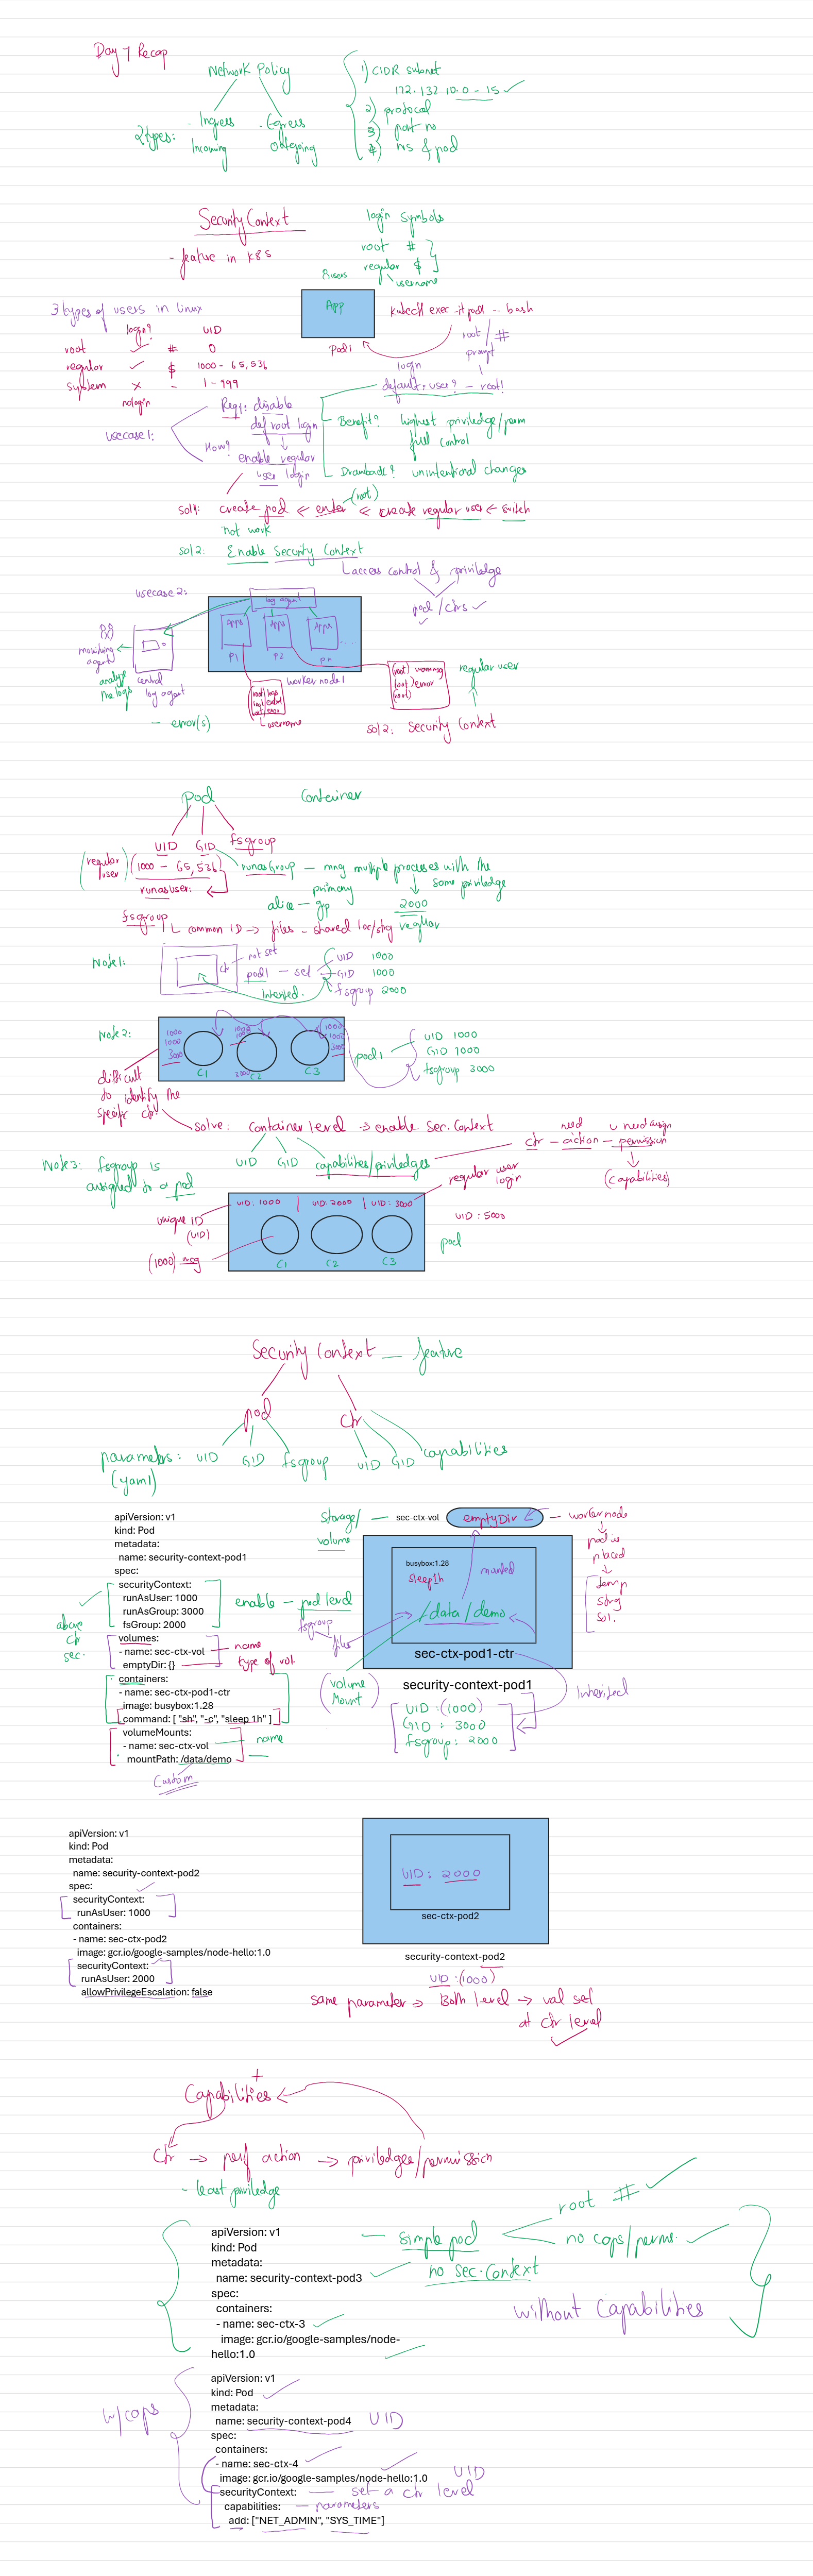 Day 7 Recap
Network Policy
2 types:
- Ingress
Incoming
- Egress
Outgoing
1) CIDR subnet
172.132.10.0 - 15
2) protocal
3) port no
4) ns & pod
Security Context
- feature in K8s
login Symbols
root #
regular $
username
3 types of users in linux
login? UID
root # 0
regular $ 1000 - 65,536
system x - 1 - 999
nologin
App
Pod1
kubectl exec -it pod1 -- bash
root / #
prompt
login
default user? - root!
Benefit? highest priviledge/perm
full control
Drawback? unintentional changes
usecase1:
Req: disable
def root login
How?
enable regular
user login
sol1: create pod ← enter (root) ← create regular user ← switch
not work
sol2: Enable Security Context
access control & priviledge
pod / ctrs
usecase2:
log agent
Apps Apps Apps
P1 P2 Pn
worker node1
monitoring
agent
analyze
the logs
central
log agent
- error(s)
username
(root) warning
(root) error
(root)
regular user
sol2: Security Context
pod
Container
UID GID fsgroup
(regular user) (1000 - 65,536)
runasuser:
runasGroup - mng multiple processes with the
same priviledge
primary
alice - grp 2000
fsgroup
common ID → files - shared loc/stg
Note1:
ctr - not set
pod1 - set
UID 1000
GID 1000
fsgroup 2000
Inherited.
Note2:
1000
1000
3000
C1 C2 C3
pod1
UID 1000
GID 1000
fsgroup 3000
difficult
to identify the
specific ctr.
solve: Container level → enable Sec. Context
UID GID capabilities/priviledges
need
ctr - action - permission
u need assign
(capabilities)
Note3: fsgroup is
assigned to a pod
regular user
login
UID: 1000 | UID: 2000 | UID: 3000
UID: 5000
unique ID
(UID)
(1000) msg
C1 C2 C3
pod
Security Context - feature
pod ctr
parameters: UID GID fsgroup UID GID capabilities
(yaml)
apiVersion: v1
kind: Pod
metadata:
name: security-context-pod1
spec:
securityContext:
runAsUser: 1000
runAsGroup: 3000
fsGroup: 2000
volumes:
- name: sec-ctx-vol
emptyDir: {}
containers:
- name: sec-ctx-pod1-ctr
image: busybox:1.28
command: [ "sh", "-c", "sleep 1h" ]
volumeMounts:
- name: sec-ctx-vol
mountPath: /data/demo
above
ctr
sec.
enable - pod level
name
type of vol
name
Custom
storage/
volume
sec-ctx-vol
emptyDir
workernode
pod is
placed
temp
strg
sol.
busybox:1.28
sleep1h
mounted
/data/demo
fsgroup
files
sec-ctx-pod1-ctr
(volume
Mount)
security-context-pod1
UID : (1000)
GID : 3000
fsgroup: 2000
Inherited
apiVersion: v1
kind: Pod
metadata:
name: security-context-pod2
spec:
securityContext:
runAsUser: 1000
containers:
- name: sec-ctx-pod2
image: gcr.io/google-samples/node-hello:1.0
securityContext:
runAsUser: 2000
allowPrivilegeEscalation: false
UID: 2000
sec-ctx-pod2
security-context-pod2
UID :(1000)
same parameter → Both level → val set
at ctr level
Capabilities
Ctr → perf action → priviledges/permission
- least priviledge
apiVersion: v1
kind: Pod
metadata:
name: security-context-pod3
spec:
containers:
- name: sec-ctx-3
image: gcr.io/google-samples/node-
hello:1.0
simple pod
no sec. Context
root #
no caps/perms.
without Capabilities
w/caps
apiVersion: v1
kind: Pod
metadata:
name: security-context-pod4 UID
spec:
containers:
- name: sec-ctx-4
image: gcr.io/google-samples/node-hello:1.0 UID
securityContext: - set a ctr level
capabilities: - parameters
add: ["NET_ADMIN", "SYS_TIME"]